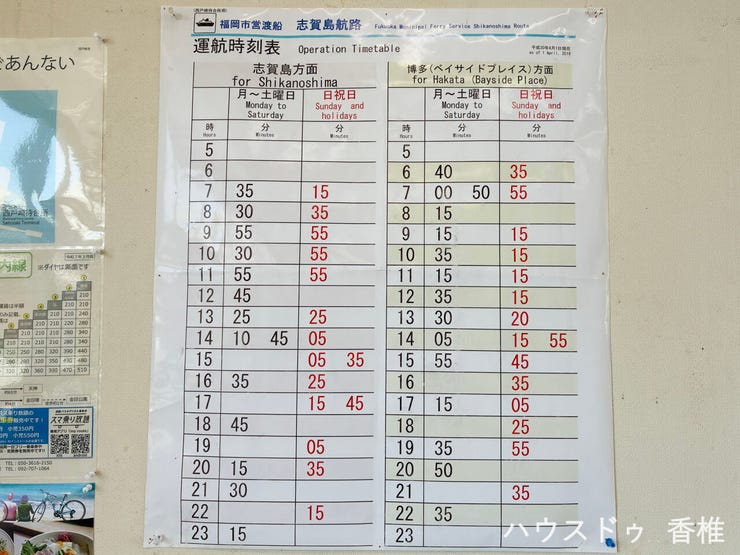 であんない
西戸崎待合所
Saitozaki Terminal
内線
※ダイヤは裏面です
スマ乗り放題
TEL：050-3616-2150
TEL：092-707-1064
(西戸崎待合所用)
福岡市営渡船 志賀島航路 Fukuoka Municipal Ferry Service Shikanoshima Route
運航時刻表 Operation Timetable
平成30年4月1日現在
as of 1 April, 2018
志賀島方面
for Shikanoshima
月～土曜日 日祝日
Monday to Saturday Sunday and holidays
時 分 分
Hours Minutes Minutes
5
6
7 35 15
8 30 35
9 55 55
10 30 55
11 55 55
12 45
13 25 25
14 10 45 05
15 05 35
16 35 25
17 15 45
18 45
19 05
20 15 35
21 30
22 15
23 15
博多(ベイサイドプレイス)方面
for Hakata (Bayside Place)
月～土曜日 日祝日
Monday to Saturday Sunday and holidays
時 分 分
Hours Minutes Minutes
5
6 40 35
7 00 50 55
8 15
9 15 15
10 35 15
11 15 15
12 35 15
13 30 20
14 05 15 55
15 55 45
16 35
17 15 05
18 25
19 35 55
20 50
21 35
22 35
23
ハウスドゥ 香椎